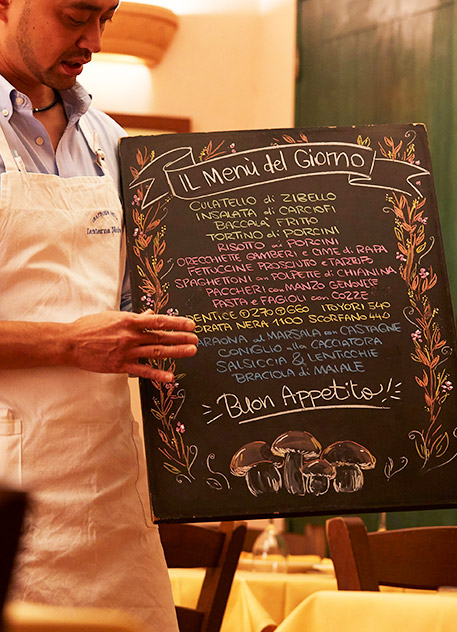 IL Menù del Giorno
CULATELLO di ZIBELLO
INSALATA di CARCIOFI
BACCALÀ FRITTO
TORTINO di PORCINI
RISOTTO ai PORCINI
ORECCHIETTE GAMBERI e CIME di RAPA
FETTUCINE PROSCIUTTO e TARTUFO
SPAGHETTONI con POLPETTE di CHIANINA
PACCHERI con MANZO GENOVESE
PASTA e FAGIOLI con COZZE
DENTICE 270 660 540
ORATA NERA 1100 SCORFANO 440
ARAONA al MARSALA con CASTAGNE
CONIGLIO alla CACCIATORA
SALSICCIA & LENTICCHIE
BRACIOLA di MAIALE
Buon Appetito!